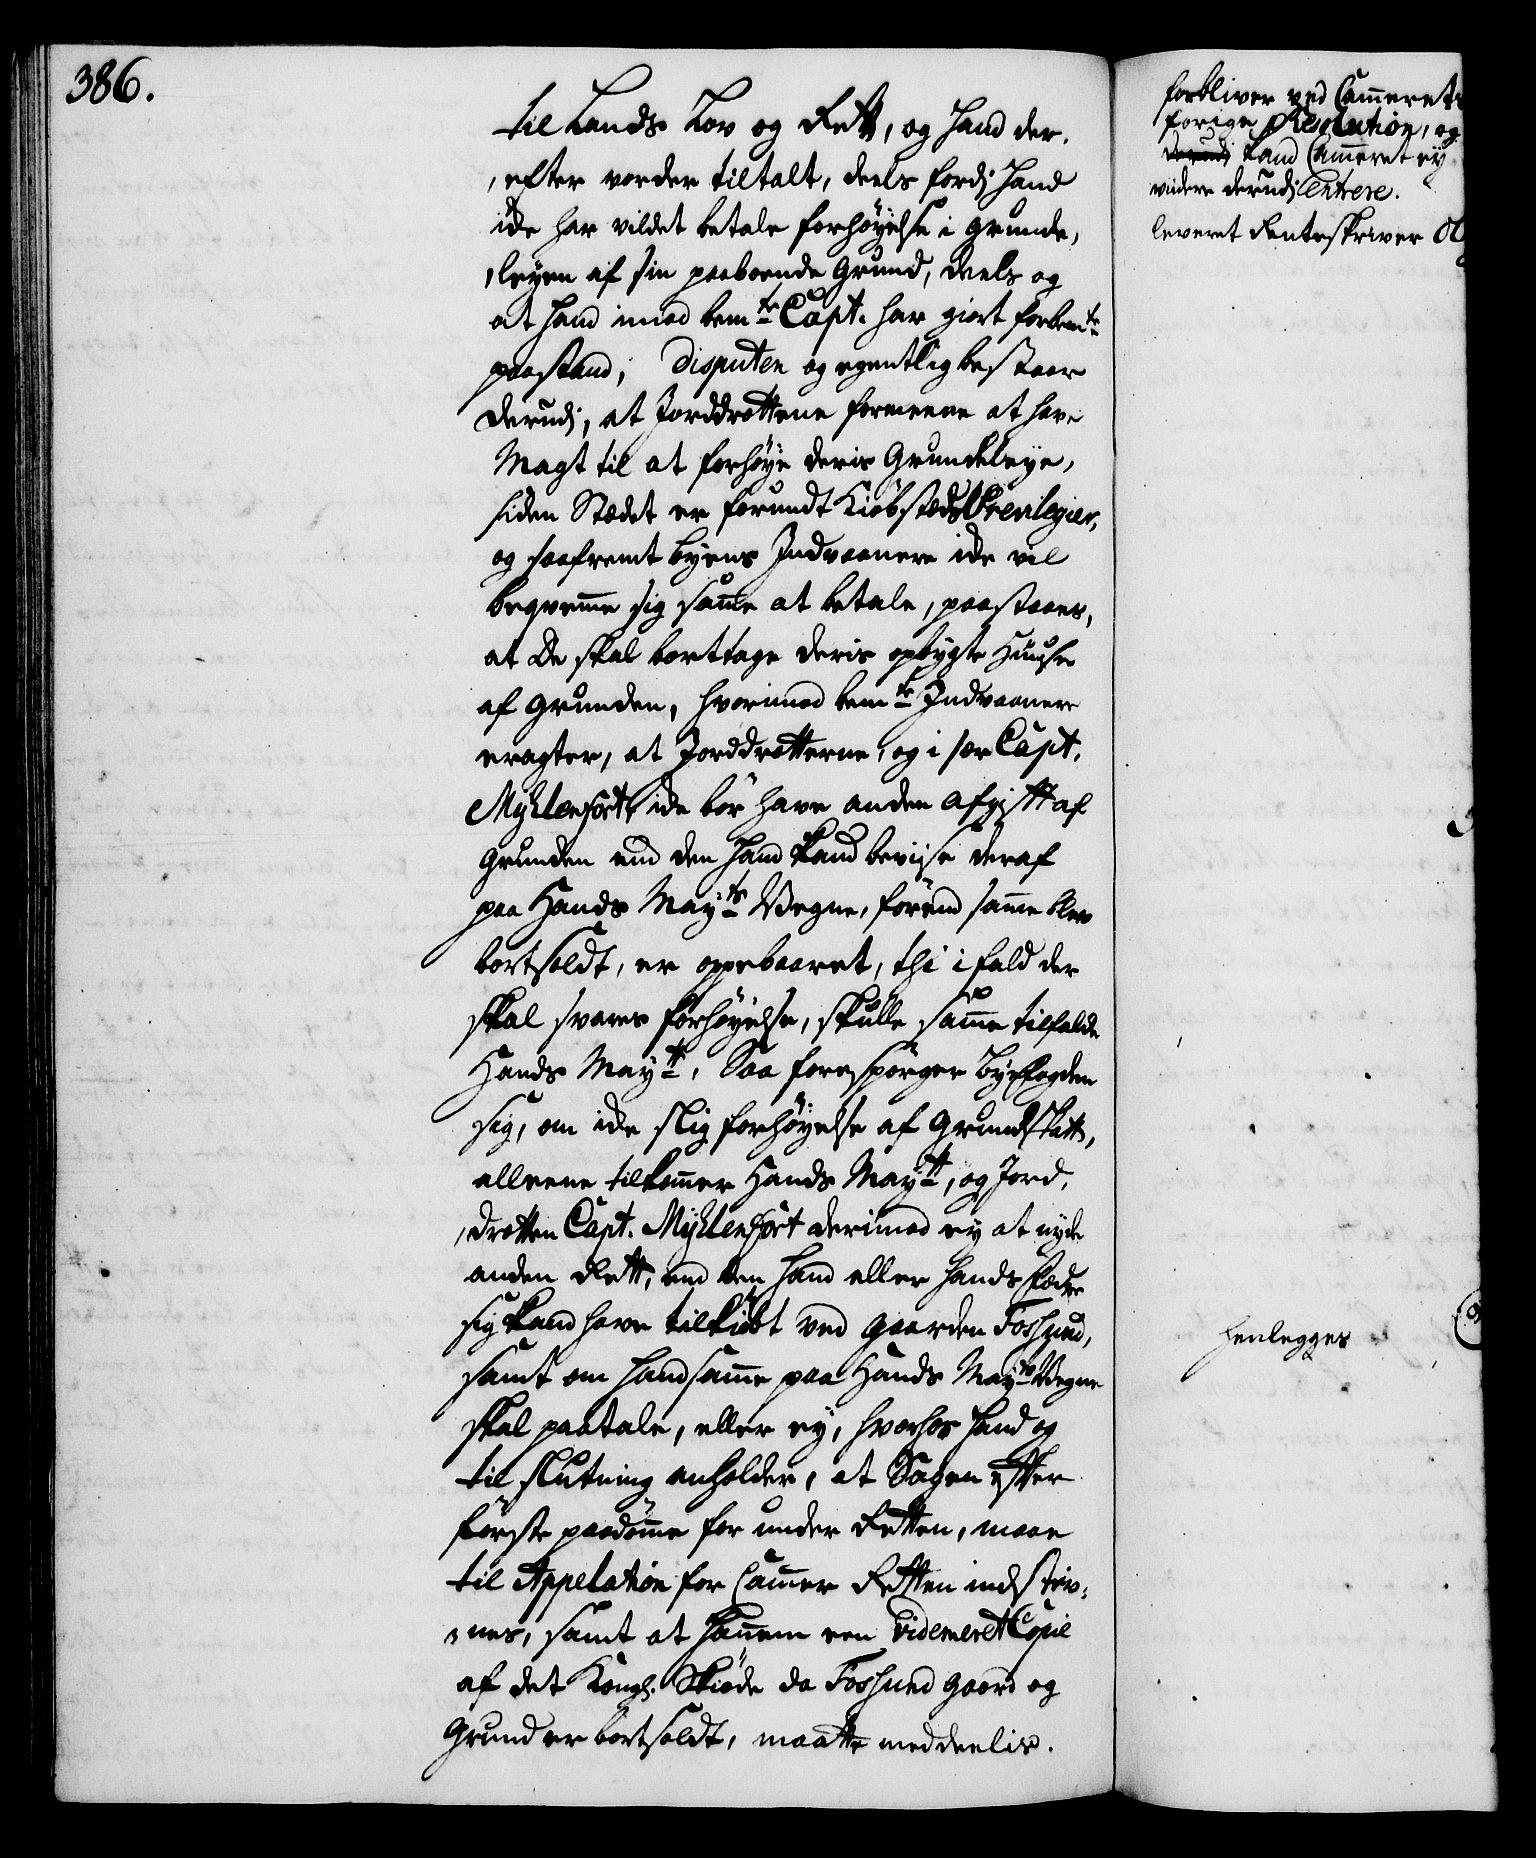 386.
til Lands Lov og Rett, og hand der,
,efter vorder tiltalt, deels fordj hand
icke har vildet betale forhøyelse i Grunde,
,leyen af sin paaboende Grund, deels og
at hand imod bem.te Capt. har giort forbem.te
paastand; Disputen og egentlig bestaar
derudj, at Jorddrottene formeene at have
Magt til at forhøye deris Grundeleye,
siden Stædet er forundt Kiøbstæds Previlegier,
og saafremt byens Indvaanere icke vil
beqvemme sig samme at betale, paastaaes,
at De skal borttage deris opbygte Huuse
af Grunden, hvorimod bem.te Indvaanere
eragter, at Jorddrotterne, og i sær Capt.
Myhlenphort, icke bør have anden afgift af
Grunden end den hand kand beviise deraf
paa Hands May.ts Vegne, førend samme blev
bortsoldt, er oppebaaret, thi ifald der
skal svares forhøyelse, skulle samme tilfalde
Hands May.tt, Saa forespørger byefogden
sig, om icke slig forhøyelse af Grundskatt,
alleene tilkommer Hands May.tt, og Jord,
,drotten Capt. Myhlenphort derimod ey at nyde
anden Rett, end den hand eller hands Fædre
sig kand have tilkiøbt ved gaarden Fossund,
samt om hand samme paa Hands May.ts Vegne
skal paatale, eller ey, hvorhos hand og
til slutning anholder, at Sagen efter
første paadømme for under Retten, maae
til Appelation for Cammer Retten indstev,
,nes, samt at hannem een Videmeret Copie
af det Kongl. Skiøde da Fossund gaard og
Grund er bortsoldt, maatte meddeelis.
forbliver ved Cammerets
forige Resolution, og
derudj kand Cammeret ey
viidere derudj Entrere.
leveret Renteskriver
henlegges